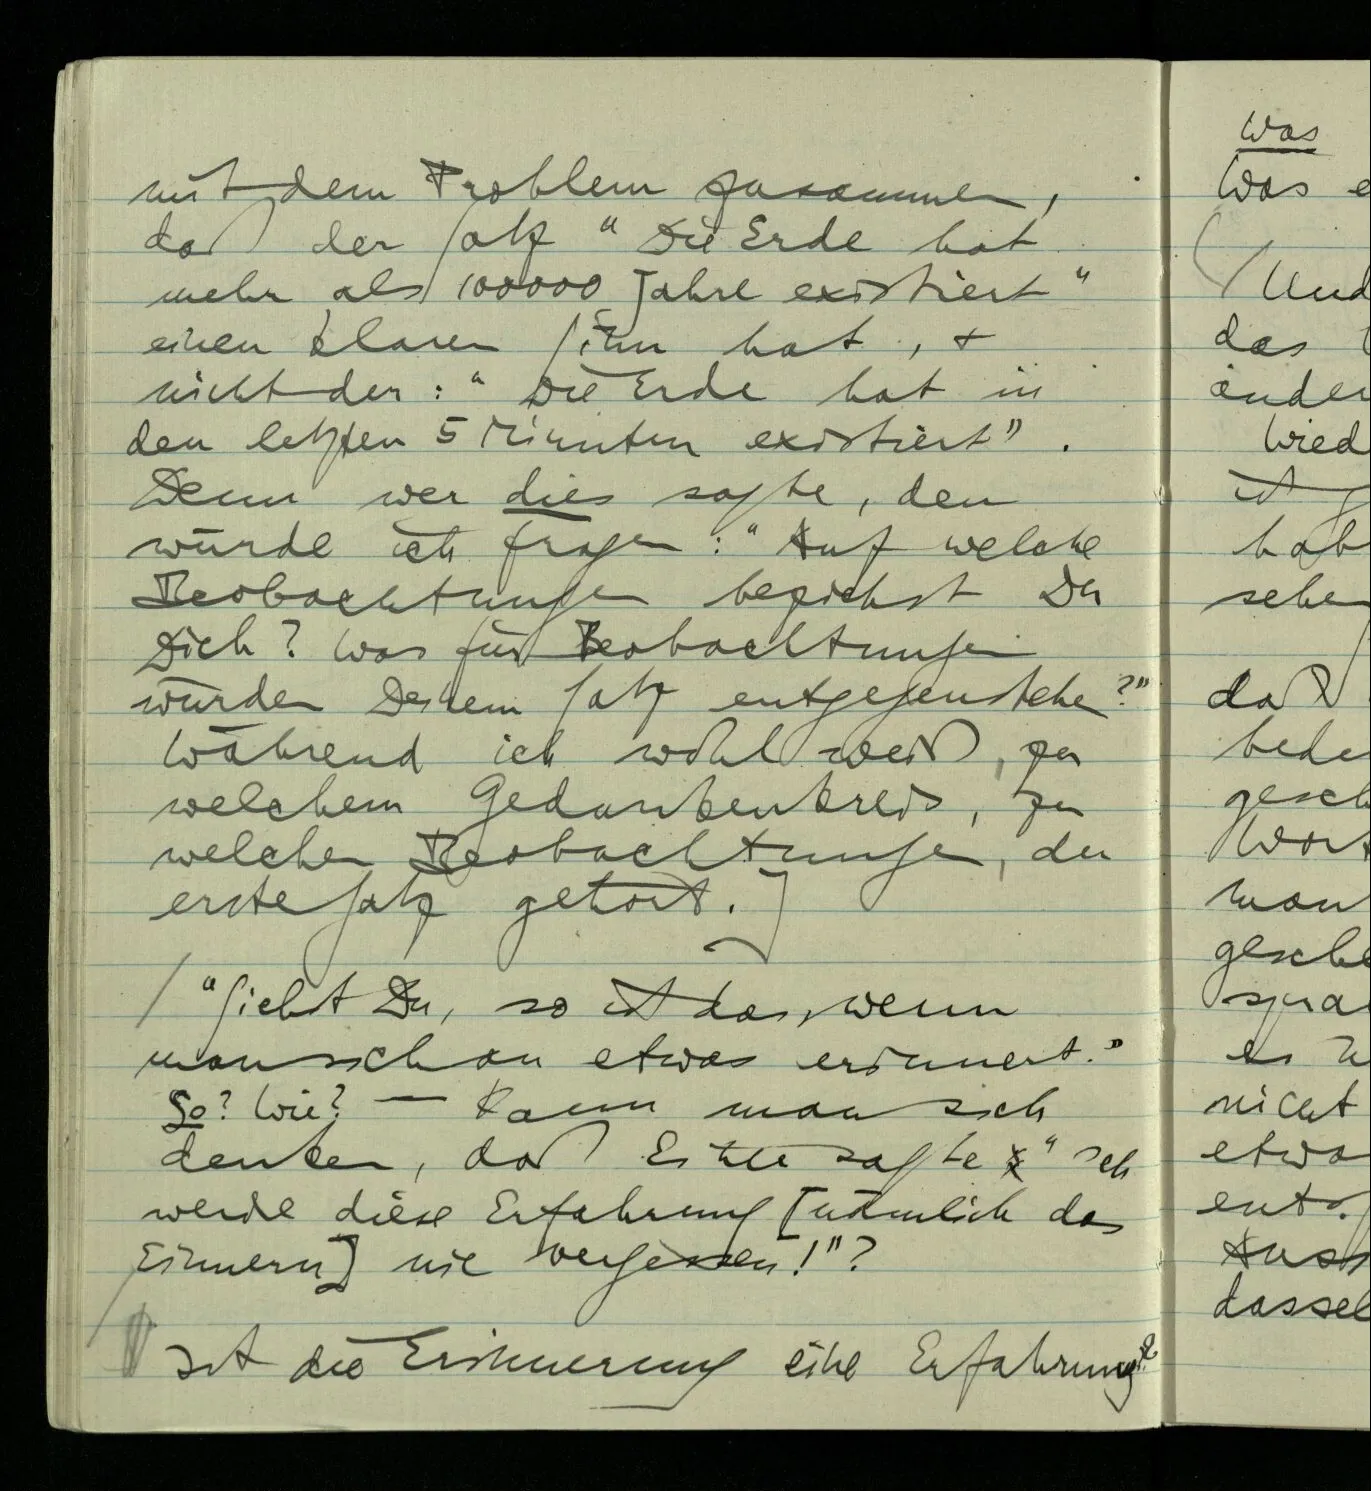 mit dem Problem zusammen,
daß der Satz “Die Erde hat
mehr als 100000 Jahre existiert”
einen klaren Sinn hat, +
nicht der: “Die Erde hat in
den letzten 5 Minuten existiert”.
Denn wer dies sagte, den
würde ich fragen: “Auf welche
Beobachtungen beziehst Du
Dich? Was für Beobachtungen
würden Deinem Satz entgegenstehen?”
Während ich wohl weiß, zu
welchem Gedankenkreis, zu
welchen Beobachtungen, der
erste Satz gehört.]
/ “Siehst Du, so ist das, wenn
man sich an etwas erinnert.”
So? Wie? — Kann man sich
denken, daß Einer sagte “Ich
werde diese Erfahrung [nämlich das
Erinnern] nie vergessen!”?
Ist die Erinnerung eine Erfahrung?
Was
Was e
Und
das
änder
Wied
ist
hab
sehen
daß
bede
gesch
Wort
man
gesche
spra
es
nicht
etwa
ent.
Auss
dassel